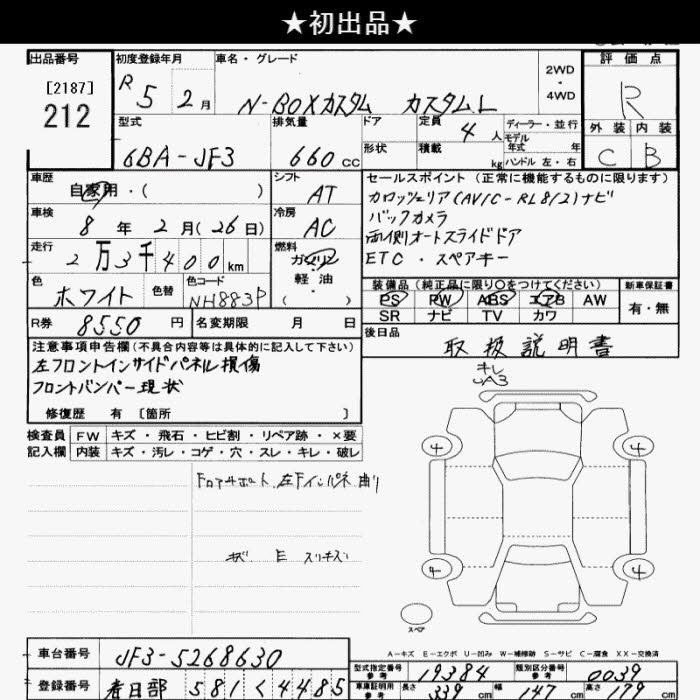 ★初出品★
出品番号 初度登録年月 車名・グレード 2WD・4WD 評価点
[2187]
212
R 5 2月 N-BOXカスタム カスタムL R
型式 排気量 ドア 定員 4人 ディーラー・並行 外装 内装
モデル年式 年
6BA-JF3 660cc 形状 積載 kg ハンドル 左・右 C B
車歴 シフト セールスポイント(正常に機能するものに限ります)
自家用・( ) AT カロッツェリア(AVIC-RL812)ナビ
車検 冷房 バックカメラ
8年2月(26日) AC 両側オートスライドドア
走行 燃料 ETC・スペアキー
2万3千400km ガソリン
色 色替 色コード 軽油 装備品(純正品に限り○をつけてください) 新車保証書
ホワイト NH883P ・( ) PS PW ABS エアB AW 有・無
SR ナビ TV カワ
R券 8550円 名変期限 月 日 後日品
取扱説明書
注意事項申告欄(不具合内容等は具体的に記入して下さい)
左フロントインサイドパネル損傷
フロントバンパー現状
修復歴 有 [箇所 ]
キレ
A3
検査員 FW キズ・飛石・ヒビ割・リペア跡・×要
記入欄 内装 キズ・汚レ・コゲ・穴・スレ・キレ・破レ
4 4
Fコアサポート、左Fインパネ曲り
キズ E スリキズ
4 4
スペア
A-キズ E-エクボ U-凹み W-補修跡 S-サビ C-腐食 XX-交換済
車台番号 JF3-5268630
型式指定番号 参考 19384 類別区分番号 参考 0039
登録番号 春日部 581 く 4485
車庫証明用 参考 長さ 339cm 幅 147cm 高さ 179cm